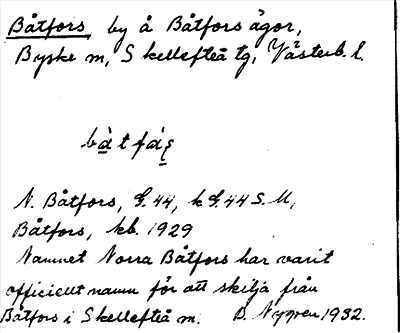 Båtfors, by å Båtfors ägor,
Byske sn, Skellefteå tg, Västerb. l.
bà̱tfá̱ʂ
N. Båtfors, G. 44, k G. 44 S. M,
Båtfors, kb. 1929
Namnet Norra Båtfors har varit
officiellt namn för att skilja från
Båtfors i Skellefteå sn. D. Nygren 1932.